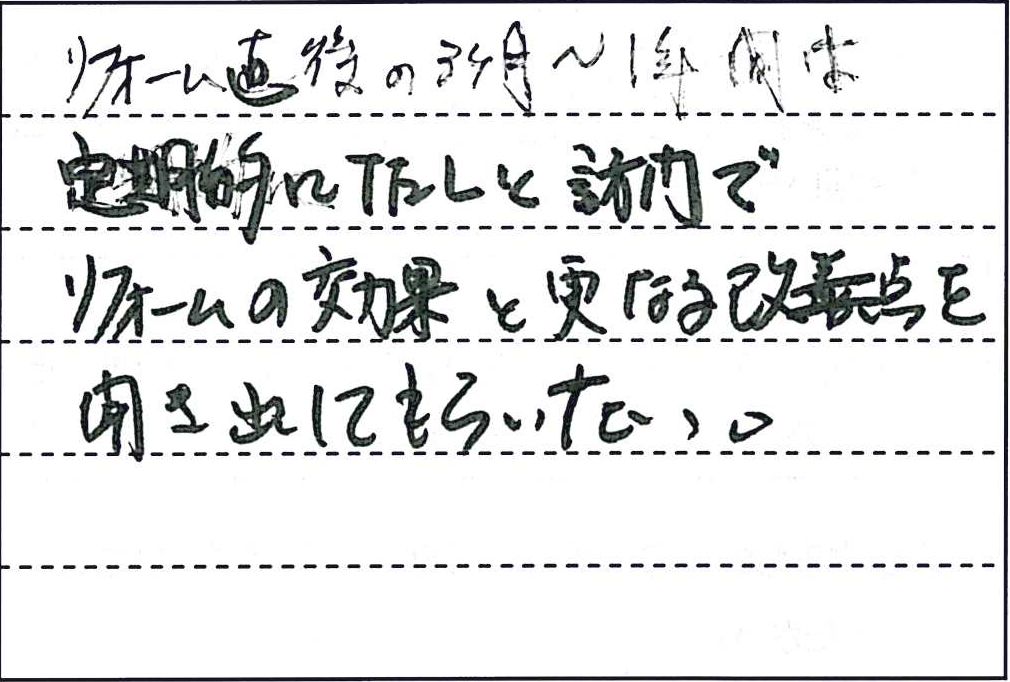 リフォーム直後の3ヶ月〜1年間は
定期的にTELと訪問で
リフォームの効果と更なる改善点を
聞き出してもらいたい。